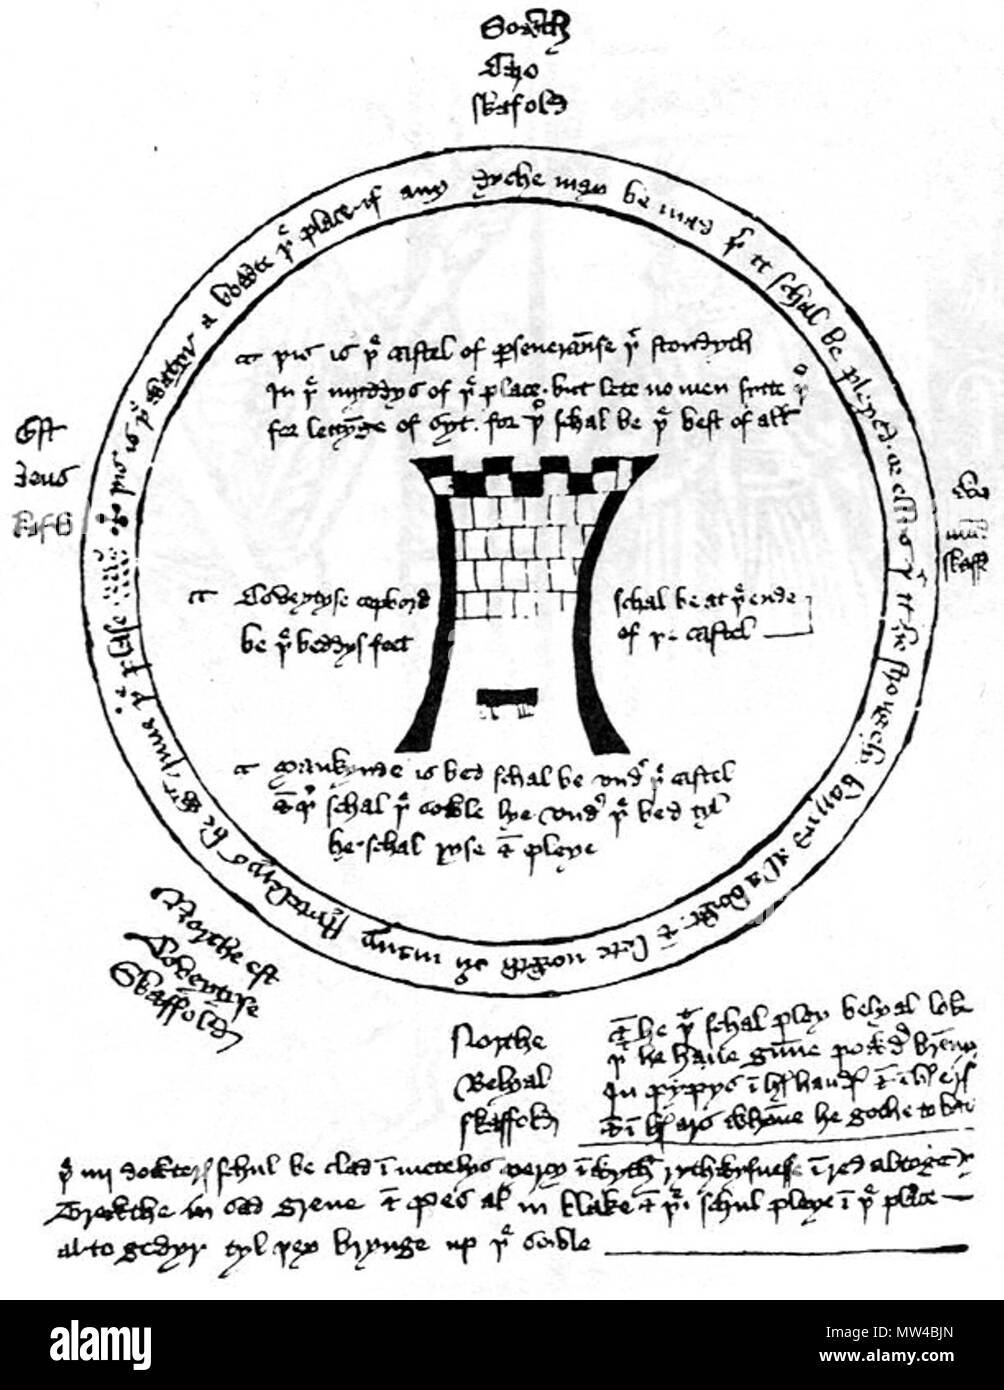 Sowth
Caro
skafold
þis is þe watyr a bowte þe place. if any dyche may be mad þer it schal be pleyed. or ellys þt it be stronglych barryd al a bowt. & lete nowth ouyr many stytelerys be wt inne þe plase
þis is þe castel of perseueraunse þt stondyth
In þe myddys of þe place. but lete no men sytte þer
for lettynge of syt. for þer schal be þe best of all
Est
deus
skafold
We
mundus
skaffold
Coveytyse copbord schal be at þe ende
be þe beddys feet of þe castel
Mankynde is bed schal be vndyr þe castel
& þer schal þe sowle lye vndyr þe bed tyl
he schal ryse & pleye
Northe est
Coveytyse
Skaffold
Northe
Belyal
skaffold
& he þt schal pley belyal loke
þt he haue gunne powdyr brennyng
In pypys in hys handys & in hys erys
& in hys ars whanne he gothe to batayl
þe iiij dowterys schul be clad in mentelys Mercy in wyth rythwysnesse in red altogedyr
Trewthe in sad grene & Pes al in blake & þei schul pleye in þe place
altogedyr tyl þey brynge up þe sowle
alamy
alamy
Image ID: MW4BJN
www.alamy.com